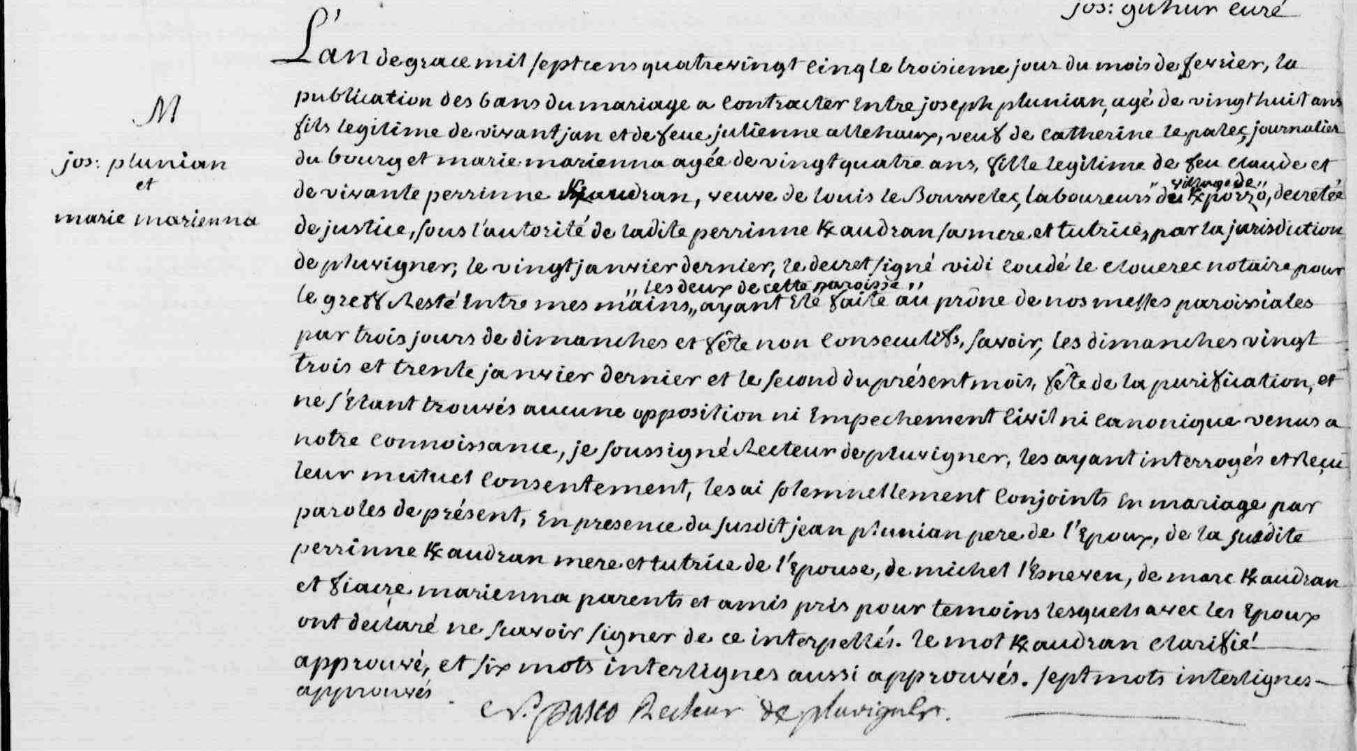 jos: guhur curé
L'an de grace mil sept cens quatre vingt cinq le troisieme jour du mois de fevrier, la
M
publication des bans du mariage a contracter Entre joseph plunian, agé de vingt huit ans
fils legitime de vivant jan et de feue julienne allehaux, veuf de catherine le palec, journalier
jos: plunian
du bourg et marie marienna agée de vingt quatre ans, fille legitime de feu claude et
et
village de
de vivante perrinne K/audran, veuve de louis le Bourveles, laboureurs du K/porzo, decretée
marie marienna
de justice, sous l'autorité de ladite perrinne K/audran sa mere et tutrice, par la jurisdiction
de pluvigner, le vingt janvier dernier, le decret signé vidi coudé le clouerec notaire pour
,, les deux de cette paroisse ,,
le greff Resté Entre mes mains,, ayant Eté faite au prône de nos messes paroissiales
par trois jours de dimanches et fête non consecutifs, savoir, les dimanches vingt
trois et trente janvier dernier et le second du présent mois, fête de la purification, et
ne s'étant trouvés aucune opposition ni Empechement Civil ni canonique venus a
notre connoissance, je soussigné Recteur de pluvigner, les ayant interrogés et Reçu
leur mutuel consentement, les ai solemnellement conjoints En mariage par
paroles de présent, En presence du susdit jean plunian pere de l'Epoux, de la susdite
perrinne K/audran mere et tutrice de l'Epouse, de michel l'Esneven, de marc K/audran
et fiacre marienna parents et amis pris pour temoins lesquels avec les Epoux
ont declaré ne scavoir signer de ce interpellés. le mot K/audran clarifié
approuvé, et six mots interlignes aussi approuvés. sept mots interlignes
approuvés
pasco Recteur de pluvigner.